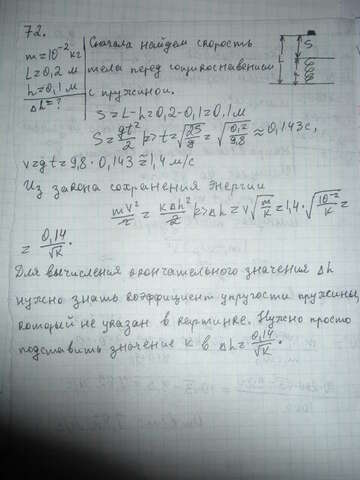 72.
m=10⁻² кг
L=0,2 м
h=0,1 м
Δh=?
Сначала найдем скорость
тела перед соприкосновением
с пружиной.
S=L-h=0,2-0,1=0,1 м
S=gt²/2 => t=√(2S/g)=√(0,2/9,8)≈0,143 с,
v=gt=9,8·0,143≈1,4 м/с
Из закона сохранения энергии
mv²/2=kΔh²/2 => Δh=v√(m/k)=1,4·√(10⁻²/k)=
=0,14/√k.
Для вычисления окончательного значения Δh
нужно знать коэффициент упругости пружины,
который не указан в картинке. Нужно просто
подставить значение k в Δh=0,14/√k.
L
S
h